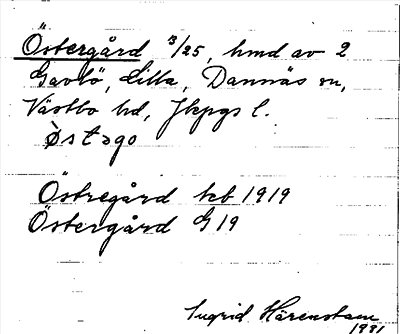 Östergård 3/25, hmd av 2
Gavlö, Lilla, Dannäs sn,
Västbo hd, Jkpgs l.
Östregård hcb 1919
Östergård G 19
Ingrid Härenstam
1931